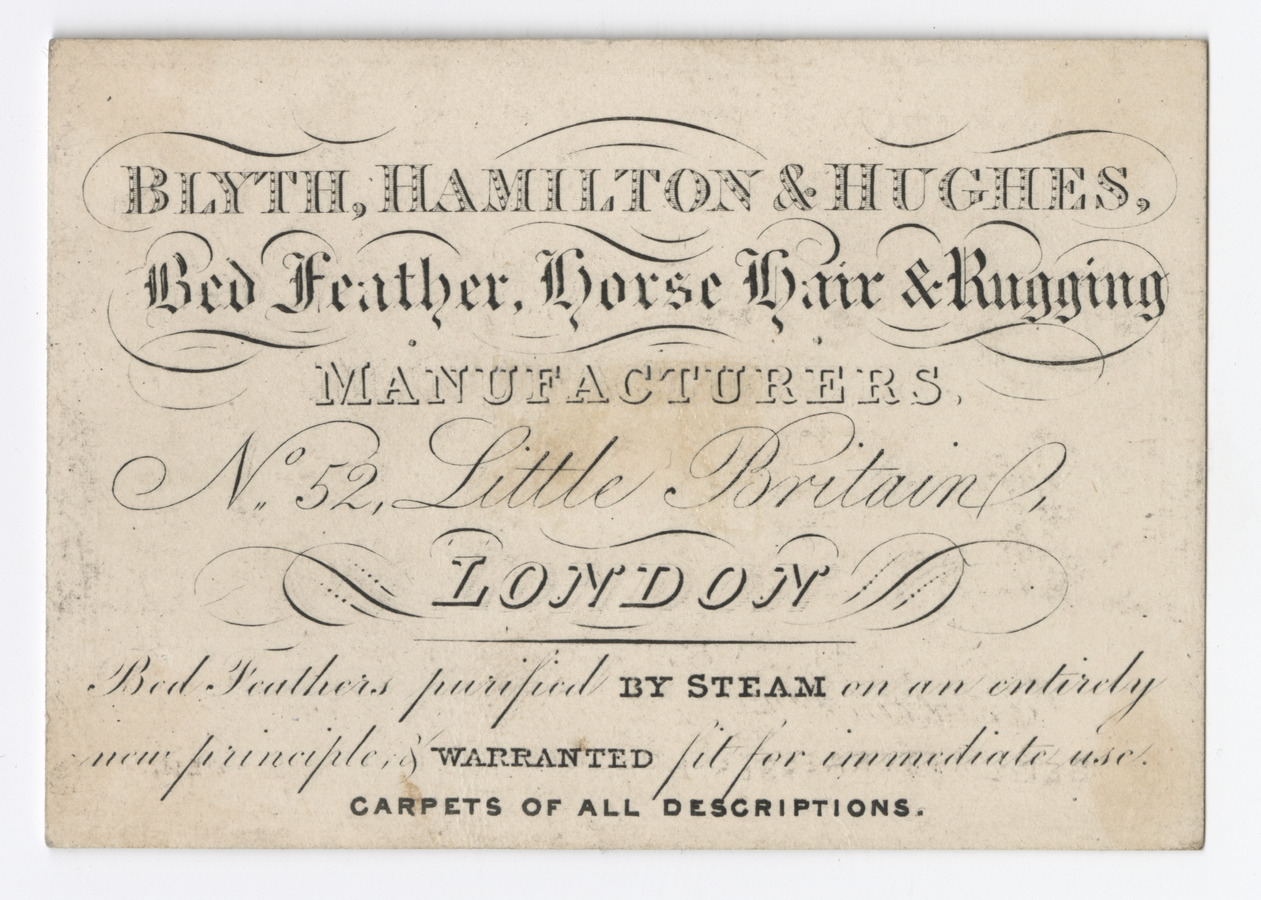 BLYTH, HAMILTON & HUGHES,
Bed Feather, Horse Hair & Rugging
MANUFACTURERS.
No. 52, Little Britain,
LONDON
Bed Feathers purified BY STEAM on an entirely
new principle, & WARRANTED fit for immediate use.
CARPETS OF ALL DESCRIPTIONS.